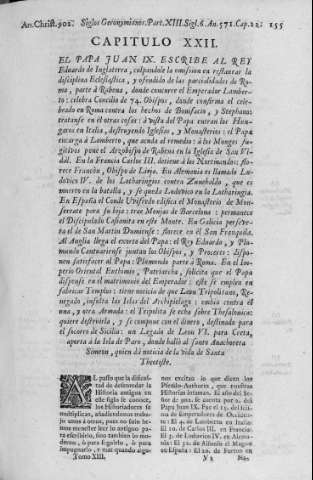 An. Christ. 902. Siglos Geronymianos. Part. XIII. Sigl. 6. An. 571. Cap. 22. 155
CAPITULO XXII.
EL PAPA JUAN IX. ESCRIBE AL REY
Eduardo de Inglaterra, culpandole la omission en restaurar la
disciplina Eclesiastica, y ofendido de las parcialidades de Ro-
ma, parte à Rabena, donde concurre el Emperador Lamber-
to: celebra Concilio de 74. Obispos, donde confirma el cele-
brado en Roma contra los hechos de Bonifacio, y Stephano:
tratanse en él otras cosas: à vista del Papa entran los Hun-
garos en Italia, destruyendo Iglesias, y Monasterios: el Papa
encarga à Lamberto, que acuda al remedio: à los Monges fu-
gitivos pone el Arzobispo de Rabena en la Iglesia de San Vi-
dàl. En la Francia Carlos III. detiene à los Nortmandos: flo-
rece Franchò, Obispo de Lieja. En Alemania es llamado Lu-
dovico IV. de los Lotharingios contra Zuneboldo, que es
muerto en la batalla, y se queda Ludovico en la Lotharingia.
En España el Conde Unifredo edifica el Monasterio de Mon-
serrate para su hija: trae Monjas de Barcelona: permanece
el Discipulado Casinita en este Monte. En Galicia persevè-
ra el de San Martin Dumiense: florece en él San Froyan.
Al Anglia llega el exorto del Papa: el Rey Eduardo, y Ple-
mundo Cantuariense juntan los Obispos, y Proceres: dispo-
nen satisfacer al Papa: Plemundo parte à Roma. En el Im-
perio Oriental Euthimio, Patriarcha, solicita que el Papa
dispense en el matrimonio del Emperador: este se emplea en
fabricar Templos: tiene noticia de que Leon Tripolitano, Rene-
gado, insulta las Islas del Archipielago: embia contra él
una, y otra Armada: el Tripolita se echa sobre Thesalonica:
quiere destruirla, y se compone con el dinero, destinado para
el socorro de Sicilia: un Legado de Leon VI. para Creta,
aporta à la Isla de Paro, donde hallò al santo Anachoreta
Simeon, quien dà noticia de la vida de Santa
Theoctiste.
AL passo que la dificul-
tad de desenredar la
Historia antigua en
este siglo se conoce,
los Historiadores se
multiplican, añadiendonos traba-
jo unos à otros, pues no solo he-
mos menester leer lo antiguo pa-
ra escribirlo, sino tambien lo mo-
derno, ò para seguirlo, ò para
impugnarlo, y mas quando algu-
Tomo XIII.
nos excitan lo que dicen los
Pseudo-Authores, que nuestras
Historias infaman. El año del Se-
ñor de 902. se cuenta por 2. del
Papa Juan IX. Fue el 15. del Im-
perio de Emperadores de Occiden-
te: El 4. de Lamberto en Italia:
El 10. de Carlos III. en Francia:
El 3. de Ludovico IV. en Alema-
nia: El 31. de Alfonso el Magno en
España: El 20. de Fortun en
V 2 Na-